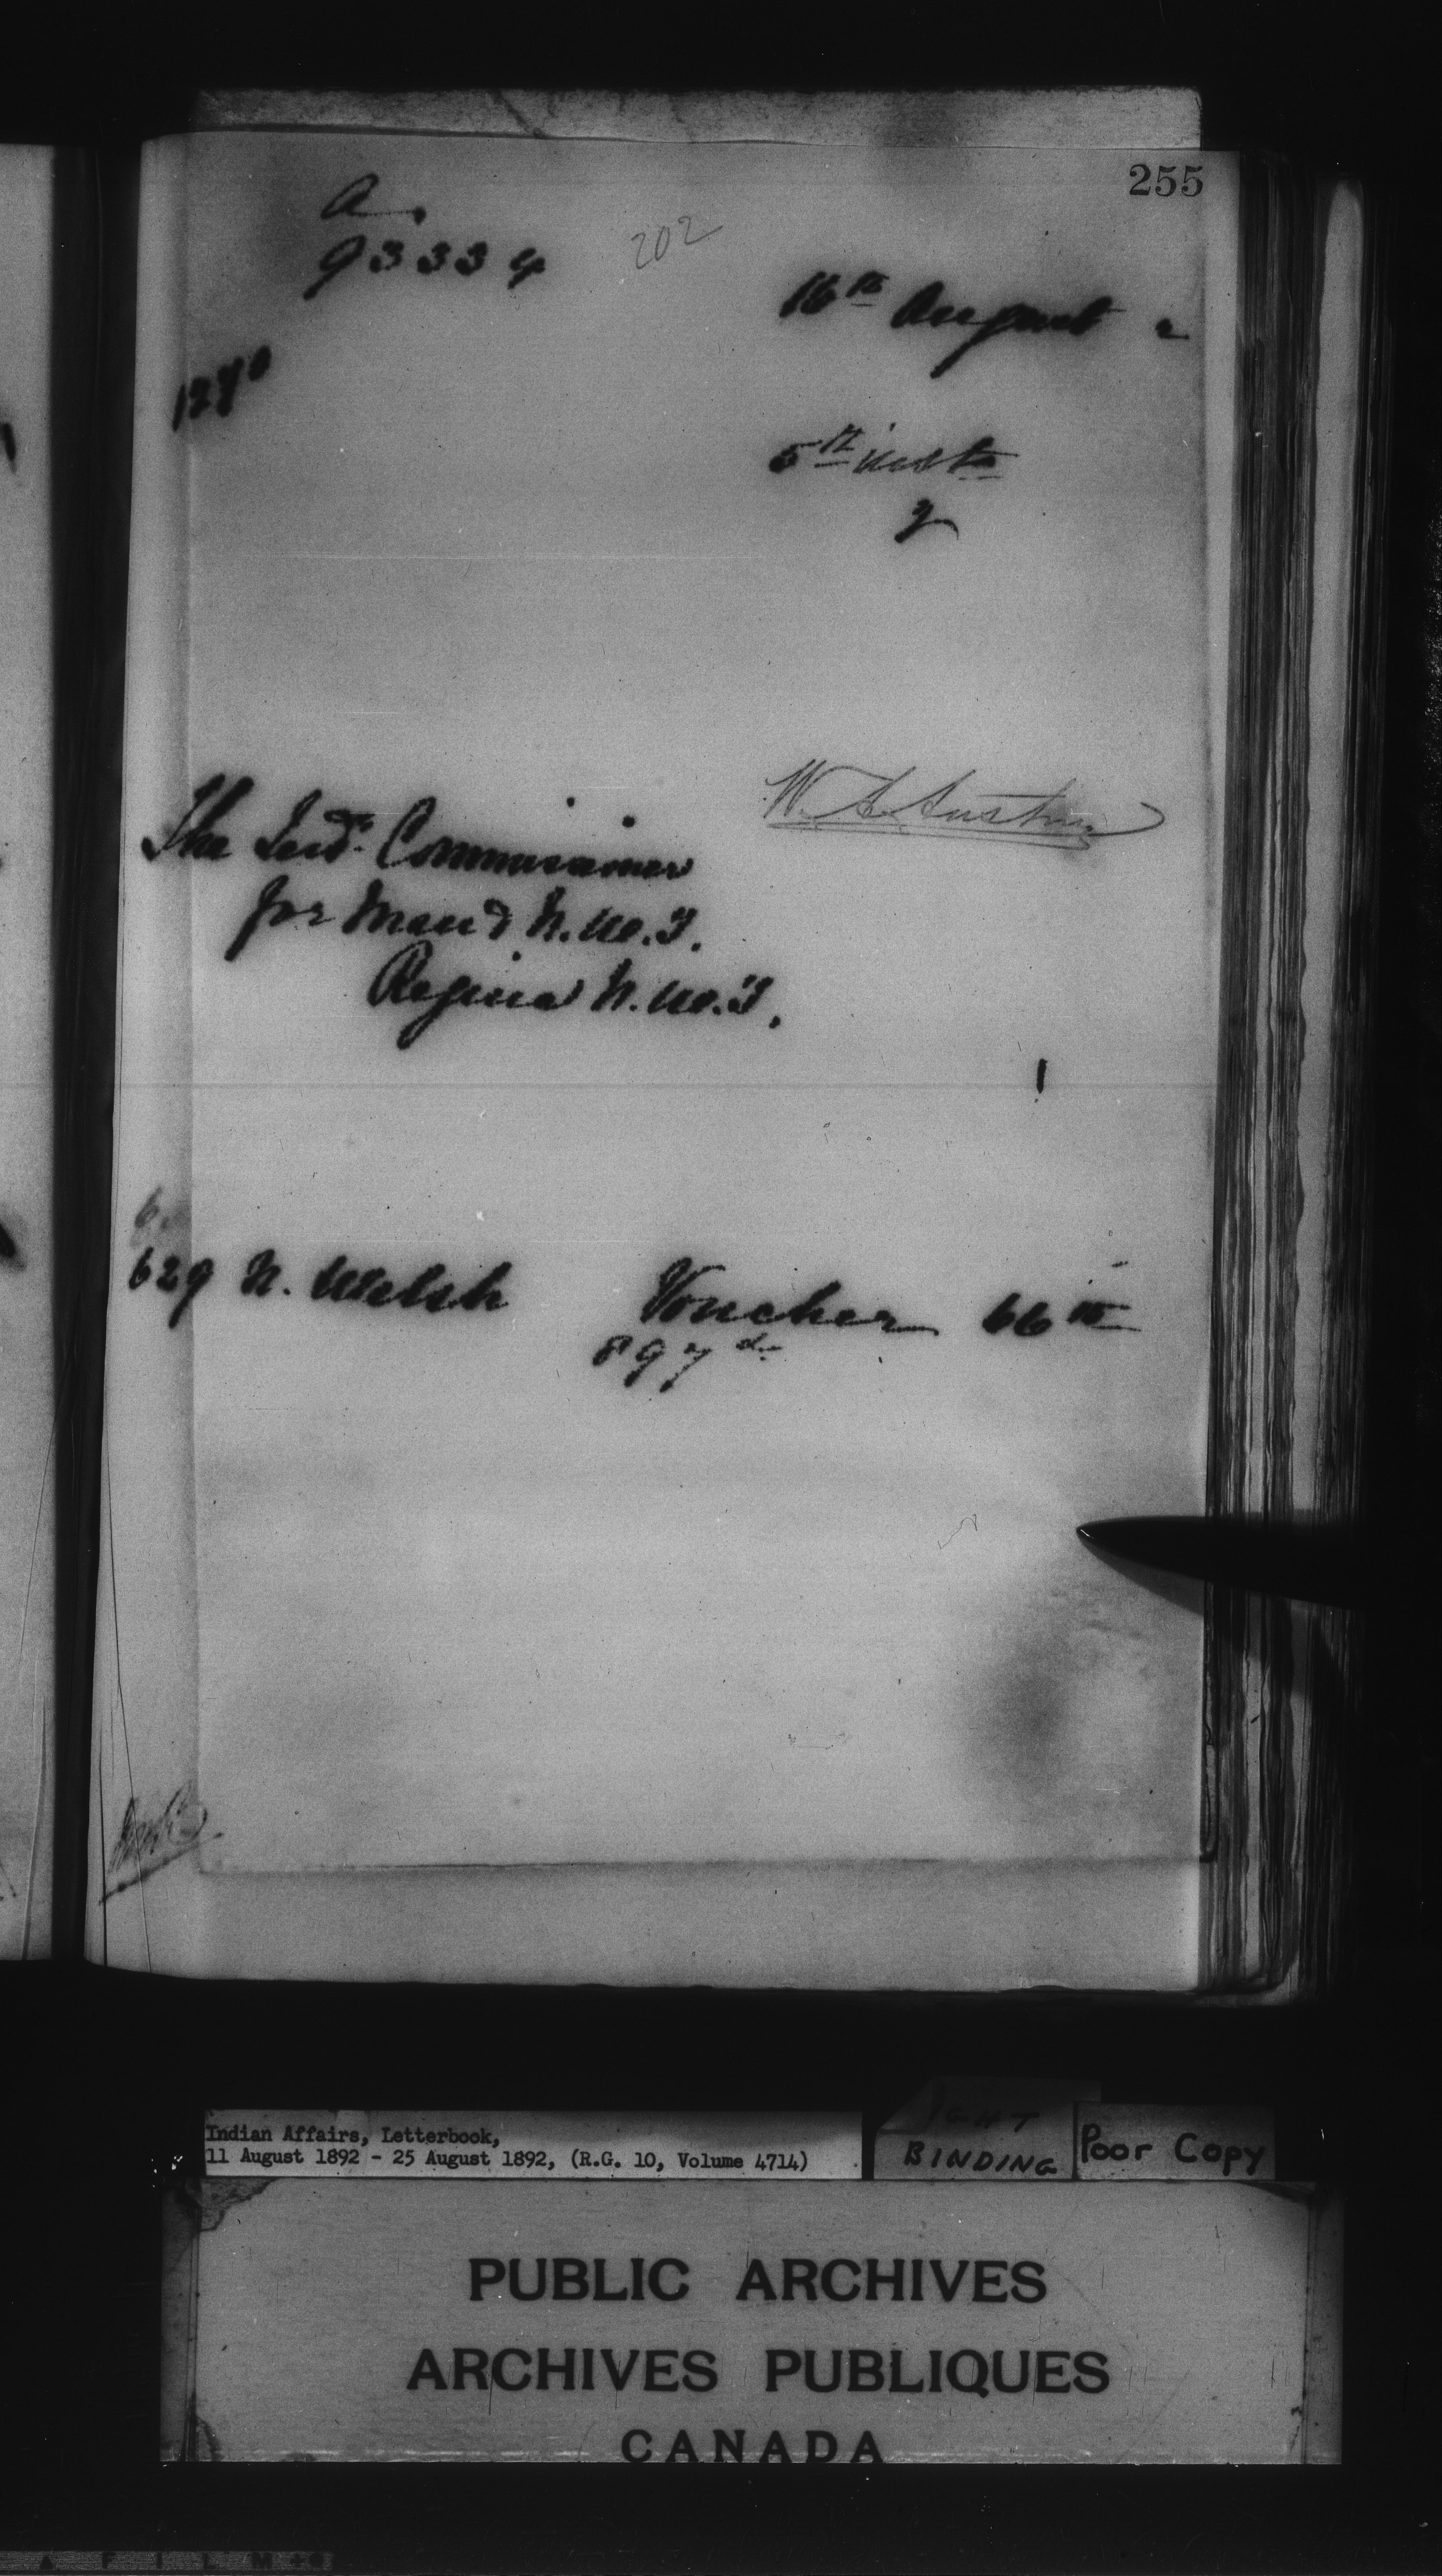 255
a.
93334
202
16th August 2
1290
5th inst
2
W A Austin
The Ind. Commissioner
for Man & N.W.T.
Regina N.W.T.
629 N. Welsh Voucher 66
897
Indian Affairs, Letterbook,
11 August 1892 - 25 August 1892, (R.G. 10, Volume 4714)
BINDING
Poor Copy
PUBLIC ARCHIVES
ARCHIVES PUBLIQUES
CANADA